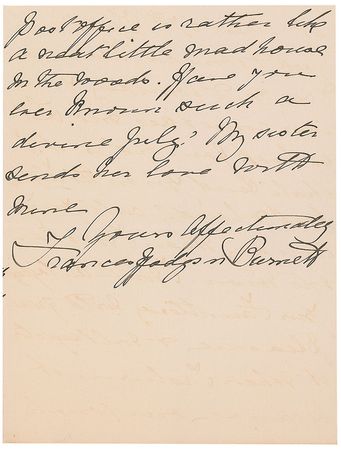 Post office is rather like
a neat little mad house
in the woods. Have you
ever known such a
divine July? My sister
sends her love with
mine
Yours affectionately
Frances Hodgson Burnett